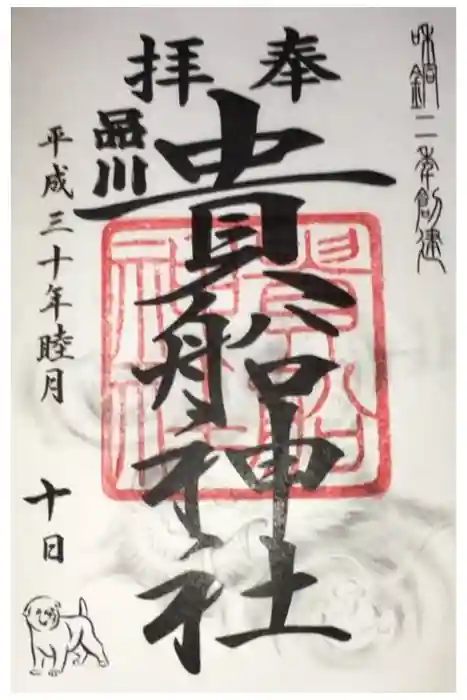 和銅二年創建
奉拝
貴船神社
品川
平成三十年睦月
十日
貴船
神社